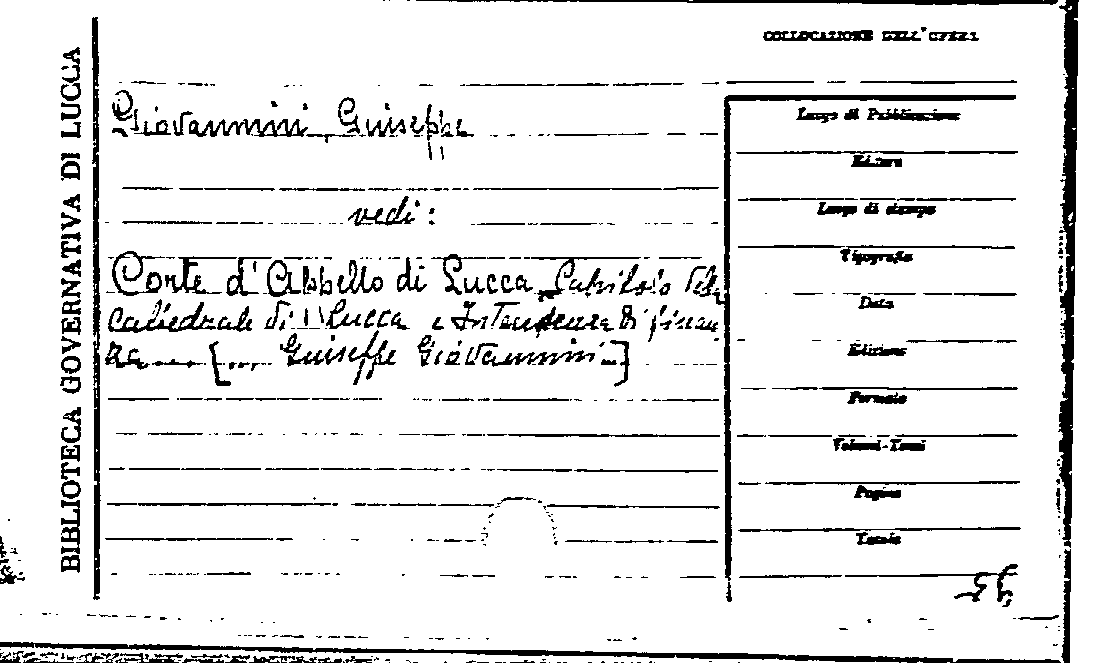 BIBLIOTECA GOVERNATIVA DI LUCCA
COLLOCAZIONE DELL'OPERA
Giovannini, Guiseppe
vedi:
Corte d'Appello di Lucca, Capitolo della
Cattedrale di Lucca e Intendenza di finan
za.... [... Guiseppe Giovannini...]
Luogo di Pubblicazione
Editore
Luogo di stampa
Tipografia
Data
Edizione
Formato
Volumi-Tomi
Pagine
Tavole